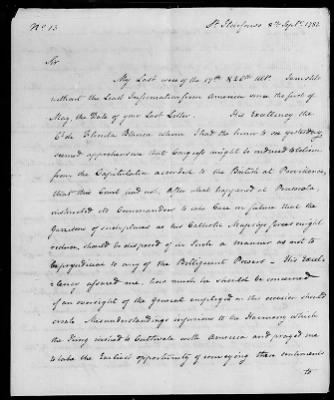 No 13
St Ildefonso 8th Septr 1782
Sir
My Last were of the 17th & 26th Ult. I am still
without the Least Information from America since the first of
May, the Date of your Last Letter. His Excellency the
Ct de Florida Blanca whom I had the honor to see yesterday,
seemed apprehensive that Congress might be induced to believe
from the Capitulation accorded to the British at Providence,
that this Court had not, after what happened at Pensacola,
instructed its Commanders to take Care in future that the
Garrisons of such places as his Catholic Majestys forces might
reduce, should be disposed of in such a manner as not to
be prejudicial to any of the Belligerent Powers. His Excel-
lency assured me, how much he should be concerned
if an oversight of the General employed on this occasion should
create Misunderstandings injurious to the Harmony which
the King wished to Cultivate with America and prayed me
to take the Earliest opportunity of conveying these sentiments
to